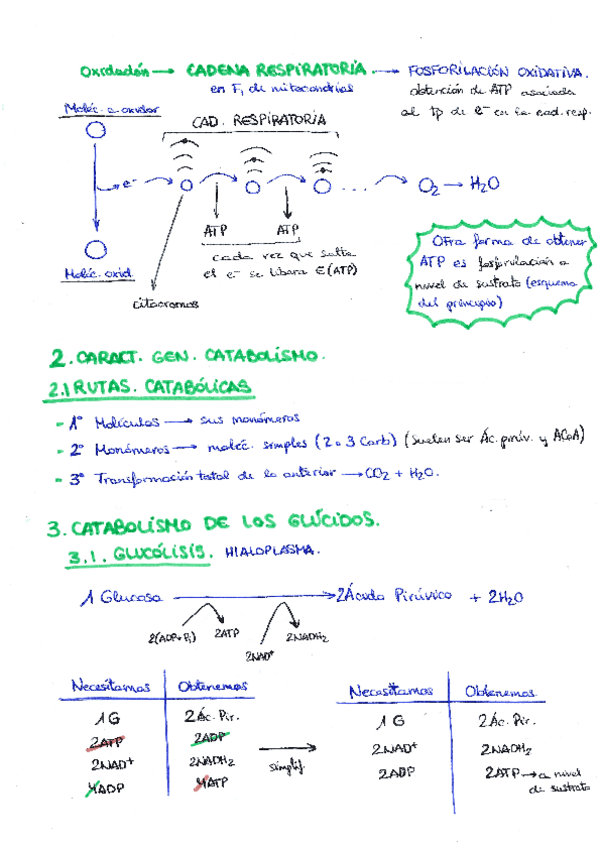 Oxidación → CADENA RESPIRATORIA → FOSFORILACIÓN OXIDATIVA.
en F1 de mitocondrias
obtención de ATP asociada
al tp de e- en la cad. resp.
Moléc. a oxidar
CAD. RESPIRATORIA
e-
... O2 → H2O
ATP ATP
cada vez que salta
el e- se libera E(ATP)
Moléc. oxid.
citocromos
Otra forma de obtener
ATP es fosforilación a
nivel de sustrato (esquema
del principio)
2. CARACT. GEN. CATABOLISMO.
2.1 RUTAS. CATABÓLICAS
- 1º Moléculas → sus monómeros
- 2º Monómeros → moléc. simples (2 o 3 Carb) (suelen ser Ác. pirúv. y ACoA)
- 3º Transformación total de lo anterior → CO2 + H2O.
3. CATABOLISMO DE LOS GLÚCIDOS.
3.1. GLUCÓLISIS. HIALOPLASMA.
1 Glucosa → 2Ácido Pirúvico + 2H2O
2(ADP+Pi) 2ATP 2NADH2
2NAD+
Necesitamos Obtenemos
1G 2Ác. Pir.
2ATP 2ADP
2NAD+ 2NADH2
4ADP 4ATP
simplif.
Necesitamos Obtenemos
1G 2Ác. Pir.
2NAD+ 2NADH2
2ADP 2ATP → a nivel
de sustrato